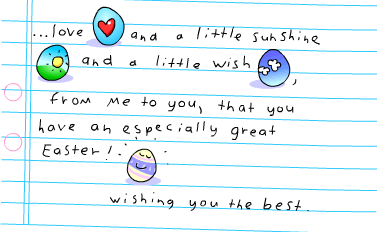 ...love and a little sunshine
and a little wish,
from me to you, that you
have an especially great
Easter!
wishing you the best.